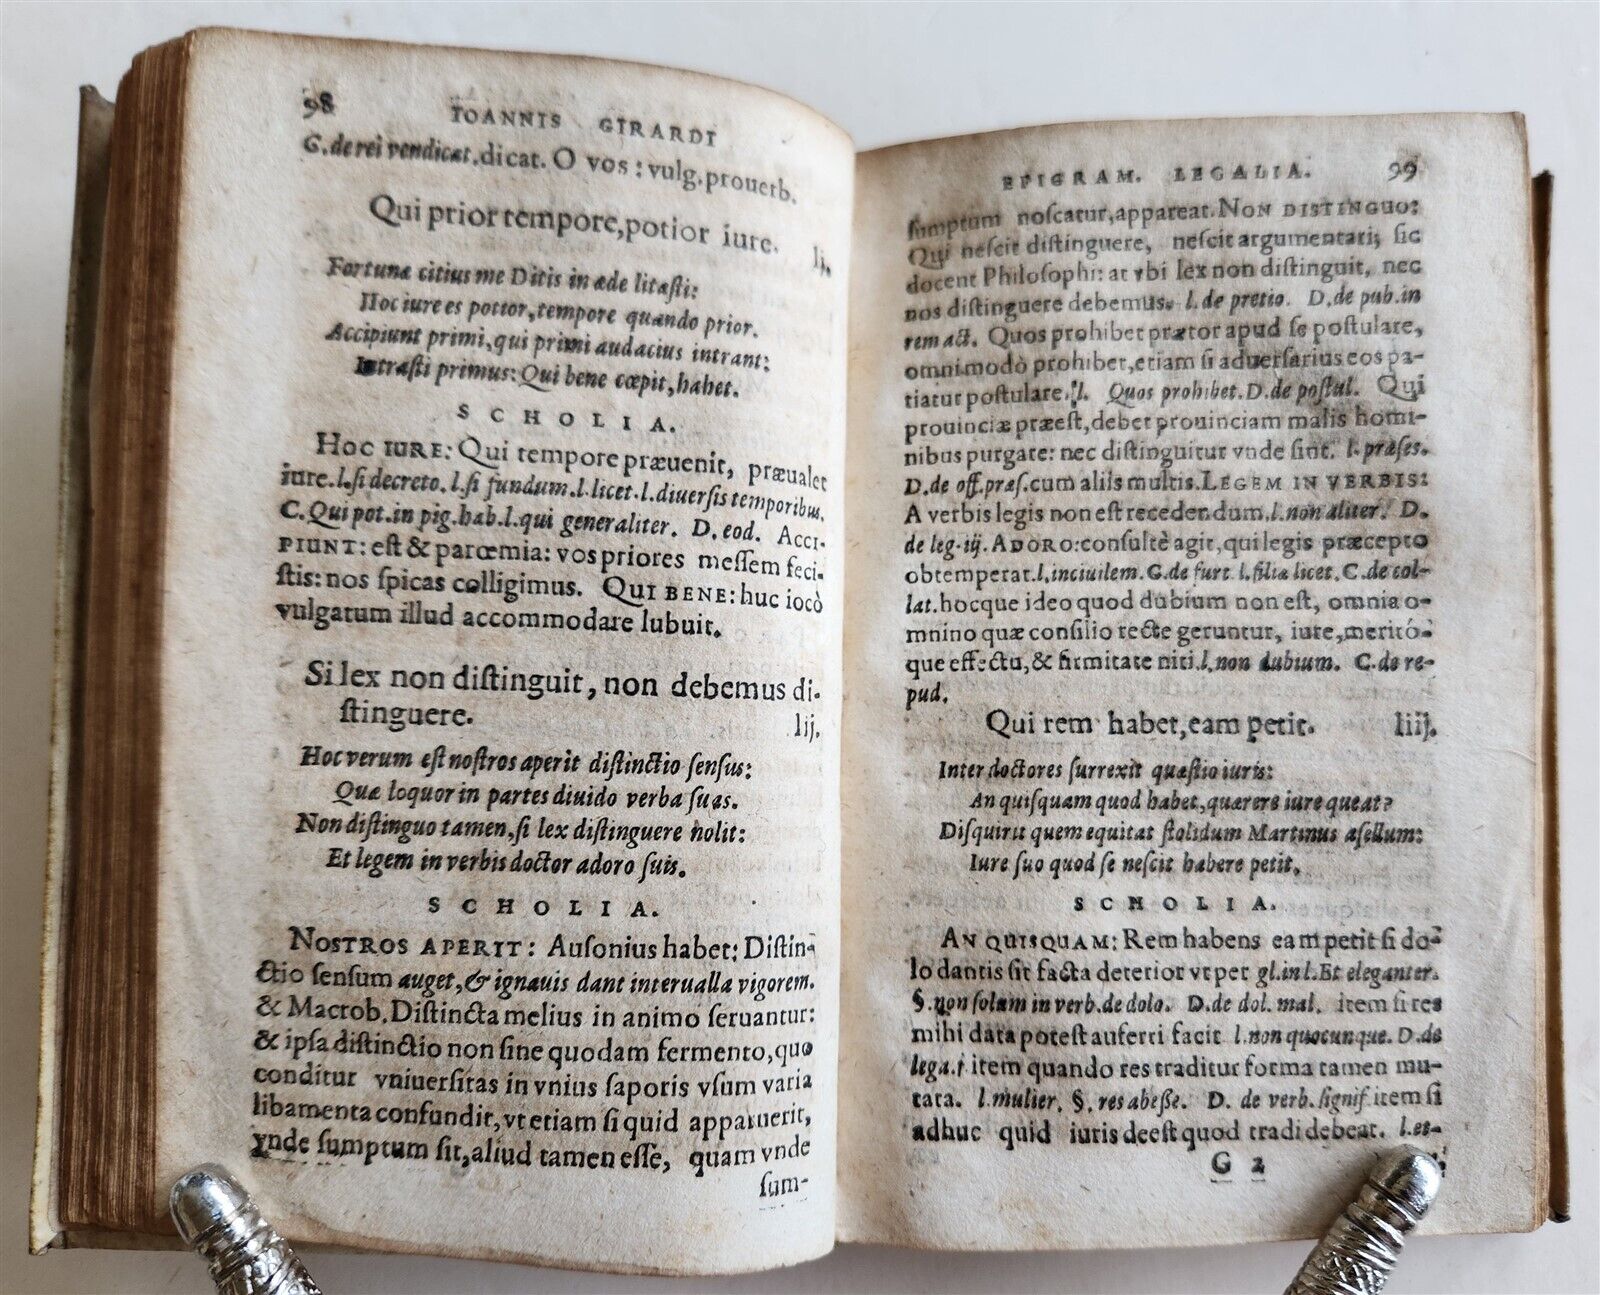 98 IOANNIS GIRARDI
G. de rei vendicat. dicat. O vos: vulg. prouerb.
Qui prior tempore, potior iure. lj.
Fortunæ citius me Ditis in æde litaſti:
Hoc iure es potior, tempore quando prior.
Accipiunt primi, qui primi audacius intrant:
Intraſti primus: Qui bene cœpit, habet.
SCHOLIA.
HOC IURE: Qui tempore præuenit, præualet
iure. l. ſi decreto. l. ſi fundum. l. licet. l. diuerſis temporibus.
C. Qui pot. in pig. hab. l. qui generaliter. D. eod. ACCI-
PIUNT: eſt & parœmia: vos priores meſſem feci-
ſtis: nos ſpicas colligimus. QUI BENE: huc iocò
vulgatum illud accommodare lubuit.
Si lex non diſtinguit, non debemus di-
ſtinguere. lij.
Hoc verum eſt noſtros aperit diſtinctio ſenſus:
Quæ loquor in partes diuido verba ſuas.
Non diſtinguo tamen, ſi lex diſtinguere nolit:
Et legem in verbis doctor adoro ſuis.
SCHOLIA.
NOSTROS APERIT: Auſonius habet: Diſtin-
ctio ſenſum auget, & ignauis dant interualla vigorem.
& Macrob. Diſtincta melius in animo ſeruantur:
& ipſa diſtinctio non ſine quodam fermento, quo
conditur vniuerſitas in vnius ſaporis vſum varia
libamenta confundit, vt etiam ſi quid apparuerit,
vnde ſumptum ſit, aliud tamen eſſe, quam vnde
ſum-
EPIGRAM. LEGALIA. 99
ſumptum noſcatur, appareat. NON DISTINGUO:
Qui neſcit diſtinguere, neſcit argumentari; ſic
docent Philoſophi: at vbi lex non diſtinguit, nec
nos diſtinguere debemus. l. de pretio. D. de pub. in
rem act. Quos prohibet prætor apud ſe poſtulare,
omnimodò prohibet, etiam ſi aduerſarius eos pa-
tiatur poſtulare. l. Quos prohibet. D. de poſtul. Qui
prouinciæ præeſt, debet prouinciam malis homi-
nibus purgare: nec diſtinguitur vnde ſint. l. præſes.
D. de off. præſ. cum aliis multis. LEGEM IN VERBIS:
A verbis legis non eſt recedendum. l. non aliter. D.
de leg. iij. ADORO: conſultè agit, qui legis præcepto
obtemperat. l. inciuilem. G. de furt. l. filiæ licet. C. de col-
lat. hocque ideo quod dubium non eſt, omnia o-
mnino quæ conſilio recte geruntur, iure, meritó-
que effectu, & firmitate niti. l. non dubium. C. de re-
pud.
Qui rem habet, eam petit. liij.
Inter doctores ſurrexit quæſtio iuris:
An quiſquam quod habet, quærere iure queat?
Diſquirit quem equitat ſtolidum Martinus aſellum:
Iure ſuo quod ſe neſcit habere petit.
SCHOLIA.
AN QUISQUAM: Rem habens eam petit ſi do-
lo dantis ſit facta deterior vt per gl. in l. Et eleganter.
§. non ſolum in verb. de dolo. D. de dol. mal. item ſi res
mihi data poteſt auferri facit l. non quocunque. D. de
lega. i item quando res traditur forma tamen mu-
tata. l. mulier. §. res abeſſe. D. de verb. ſignif. item ſi
adhuc quid iuris deeſt quod tradi debeat. l. es-
G 2